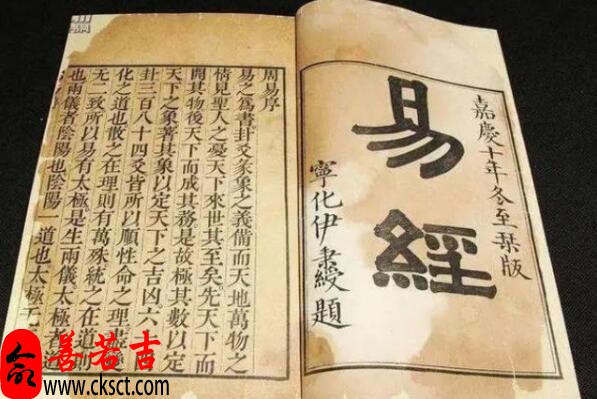 嘉慶十年冬至栞版
易經
寧化伊秉綬題
周易序
易之爲書卦爻彖象之義備而天地萬物之
情見聖人之憂天下來世其至矣先天下而
開其物後天下而成其務是故極其數以定
天下之象著其象以定天下之吉凶六
卦三百八十四爻皆所以順性命之理盡
化之道也散之在理則有萬殊統之在道則
无二致所以易有太極是生兩儀太極者道
也兩儀者陰陽也陰陽一道也太極无
善若吉
www.cksct.com